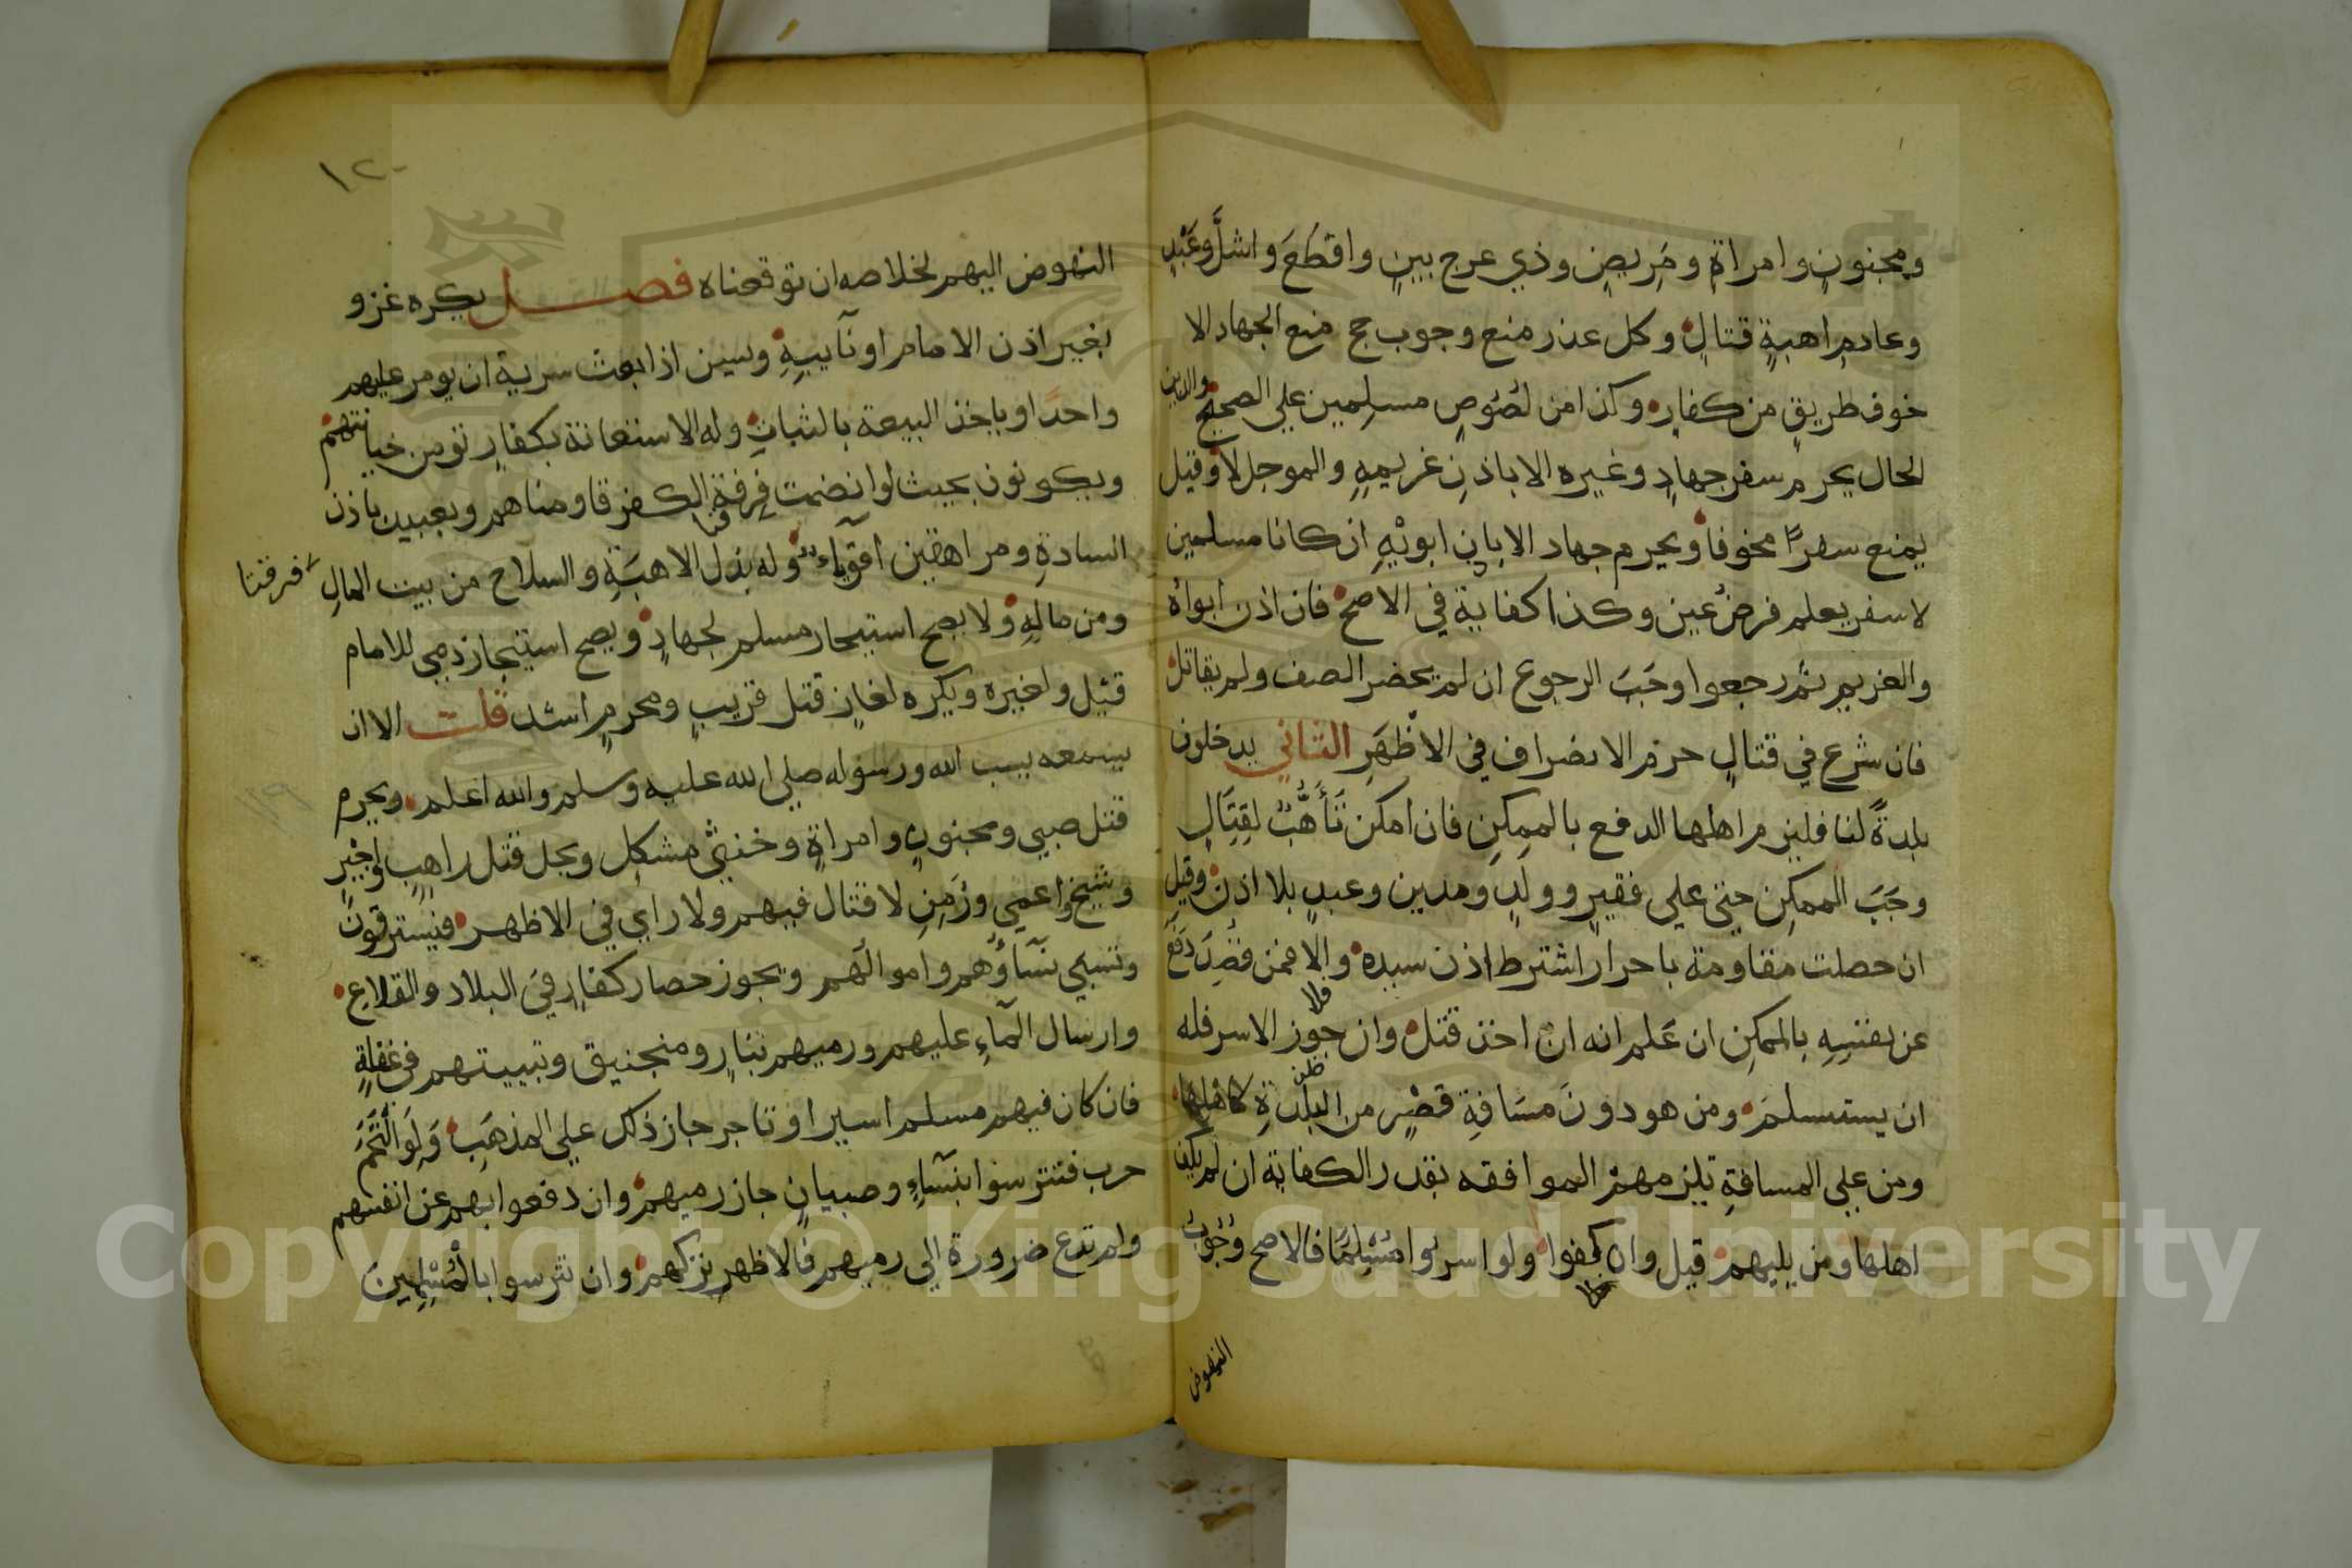 ومجنونٍ وامراةٍ ومَريضٍ وذي عرج بينٍ واقطَعَ واشلَّ وعَبْدٍ
وعادمِ اهبةٍ قتالٍ وكل عذر منع وجوب حج منع الجهاد الا
خوف طريقٍ من كفارٍ وكذا من لصُوصٍ مسلِمين علي الصحيح والدين
الحال يحرم سفر جهادٍ وغيره الا باذنِ غريمهِ والموجل لا وقيل
يمنع سفرًا مخوفا ويحرم جهاد الا باذن ابويْهِ ان كانا مسلمين
لا سفر يعلم فرضُ عين وكذا كفاية في الاصح فان اذن ابواهُ
والغريم ثم رجعوا وجَبَ الرجوع ان لم يحضر الصف ولم يقاتل
فان شرع في قتالٍ حرم الانصراف في الاظهَرِ الثاني يدخلون
بلدةً لنا فليزم اهلها الدفع بالممكنِ فان امكن تَأهُّبٌ لقِتَالٍ
وجَبَ الممكن حتى علي فقيرٍ وولدٍ ومدين وعبدٍ بلا اذن وقيل
ان حصلت مقاومة باحرار اشترط اذن سيده والا فمن قُصِدَ دَفَعَ
عن نفسِهِ بالممكنِ ان عَلم انه ان اخذ قتل وان جوز الاسر فله
فلا
ان يستسلمَ ومن هو دونَ مسَافةِ قصْرٍ من البلدةِ كاهلها
ومن علي المسافةِ تلزمهمُ الموافقه بقدر الكفاية ان لم يكف
اهلها ومن يليهم قيل وان كفوا ولو اسرُوا مُسْلِمًا فالاصح وُجُوبُ
النهوض
١٢٠
النهوض اليهم لخلاصه ان توقعناه فصل يكره غزو
بغير اذن الامام او نآيبِهِ ويسن اذا بعث سرية ان يومر عليهم
واحدًا وياخذ البيعة بالثباتِ وله الاستعانة بكفارٍ تومن خيانتهم
ويكونون بحيث لو انضمت فِرقة الكفر قاومناهم وبعبيد باذن
السادةِ ومراهقين اقوياء وله بذل الاهبَةِ والسلاح من بيت المالِ
فرقتا
ومن مالهِ ولا يصح استيجار مسلم لجهادٍ ويصح استيجار ذمي للامام
قيل ولغيره ويكره لغازٍ قتل قريبٍ ومحرمٍ اشد قلت الا ان
يسمعه يسب الله ورسوله صلي الله عليه وسلم والله اعلم ويحرم
قتل صبي ومجنونٍ وامراةٍ وخنثي مشكل ويحل قتل راهبٍ واجيرٍ
وشيخ واعمي وزَمِنٍ لا قتال فيهم ولا راي في الاظهر فيسترقونَ
وتسبي نسآؤهم واموالهم ويجوز حصار كفارٍ في البلاد والقلاعِ
وارسال المآءِ عليهم ورميهم بنارٍ ومنجنيق وتبييتهم في غفلةٍ
فان كان فيهم مسلم اسير او تاجر جاز ذلك علي المذهَبِ وَلَو التَحَمَ
حرب فتترسوا بنسآءٍ وصبيانٍ جاز رميهم وان دفعوا بهم عن انفسهم
ولم تدع ضرورة الي رميهم فالاظهر تركهم وان تترسوا بالمُسْلِمِينَ
Copyright © King Saud University